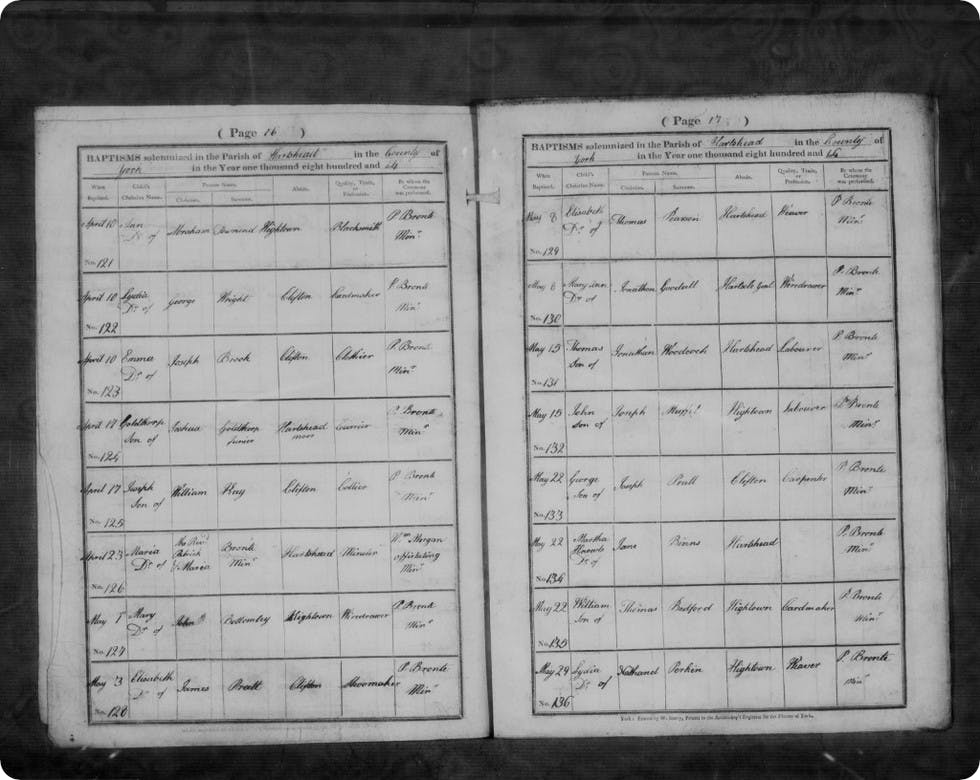 ( Page 16 )
BAPTISMS solemnized in the Parish of Hartshead in the County of
York in the Year one thousand eight hundred and 14
When Baptized. Child's Christian Name. Parents Name. Christian. Surname. Abode. Quality, Trade, or Profession. By whom the Ceremony was performed.
April 10 Ann Dr. of Abraham Townend Hightown Blacksmith P. Bronte Minr.
No. 121
April 10 Lydia Dr. of George Wright Clifton Cardmaker P. Bronte Minr.
No. 122
April 10 Emma Dr. of Joseph Brook Clifton Clothier P. Bronte Minr.
No. 123
April 17 Goldthorp Son of Joshua Goldthorp Junier Hartshead moor Currier P. Bronte Minr.
No. 124
April 17 Joseph Son of William Clifton Collier P. Bronte Minr.
No. 125
April 23 Maria Dr. of The Revd. Patrick & Maria Bronte Minr. Hartshead Minister Wm. Morgan officiating Minr.
No. 126
May 1 Mary Dr. of John Bottomley Hightown Wiredrawer P. Bronte Minr.
No. 127
May 3 Elizabeth Dr. of James Pratt Clifton Shoemaker P. Bronte Minr.
No. 128
( Page 17 )
BAPTISMS solemnized in the Parish of Hartshead in the County of
York in the Year one thousand eight hundred and 14
When Baptized. Child's Christian Name. Parents Name. Christian. Surname. Abode. Quality, Trade, or Profession. By whom the Ceremony was performed.
May 8 Elizabeth Dr. of Thomas Pearson Hartshead Weaver P. Bronte Minr.
No. 129
May 8 Mary Ann Dr. of Jonathan Goodall Wiredrawer P. Bronte Minr.
No. 130
May 15 Thomas Son of Jonathan Woodcock Hartshead Labourer P. Bronte Minr.
No. 131
May 15 John Son of Joseph Hightown Labourer P. Bronte Minr.
No. 132
May 22 George Son of Joseph Pratt Clifton Carpenter P. Bronte Minr.
No. 133
May 22 Martha Dr. of Jane Binns Hartshead P. Bronte Minr.
No. 134
May 22 William Son of Thomas Bedford Hightown Cardmaker P. Bronte Minr.
No. 135
May 29 Lydia Dr. of Nathanel Perkin Hightown Weaver P. Bronte Minr.
No. 136